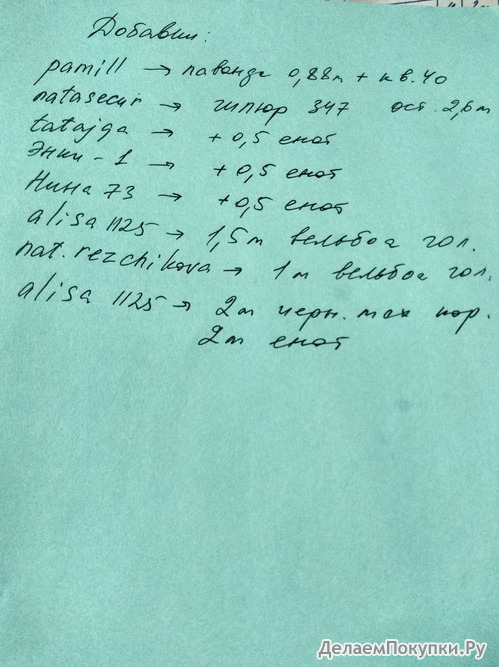 Добавил:
pamill → лаванда 0,88м + кв. 40
natasecur → гипюр 347 ост. 2,6 м
tatajga → + 0,5 енот
Энки - 1 → + 0,5 енот
Нина 73 → + 0,5 енот
alisa 1125 → 1,5м вельбоа гол.
nat.rezchikova → 1м вельбоа гол.
alisa 1125 → 2м черн. мех кор.
2м енот
ДелаемПокупки.Ру